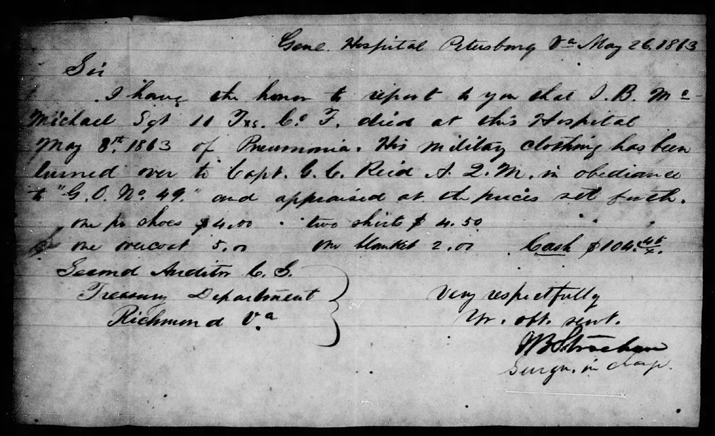 Genl. Hospital Petersburg Va May 26. 1863
Sir
I have the honor to report to you that J. B. Mc-
Michael Sgt 11 Txs. Co F. died at this Hospital
May 8th 1863 of Pneumonia. His military clothing has been
turned over to Capt. G. C. Reid A. Q. M. in obediance
to "G. O. No. 49." and appraised at the prices set forth.
one pr shoes $4.00 two shirts $4.50
one overcoat 5.00 one blanket 2.00 Cash $104.
Second Auditor C. S.
Treasury Department
Richmond Va
Very respectfully
Yr. obt. servt.
Surgn. in charge.